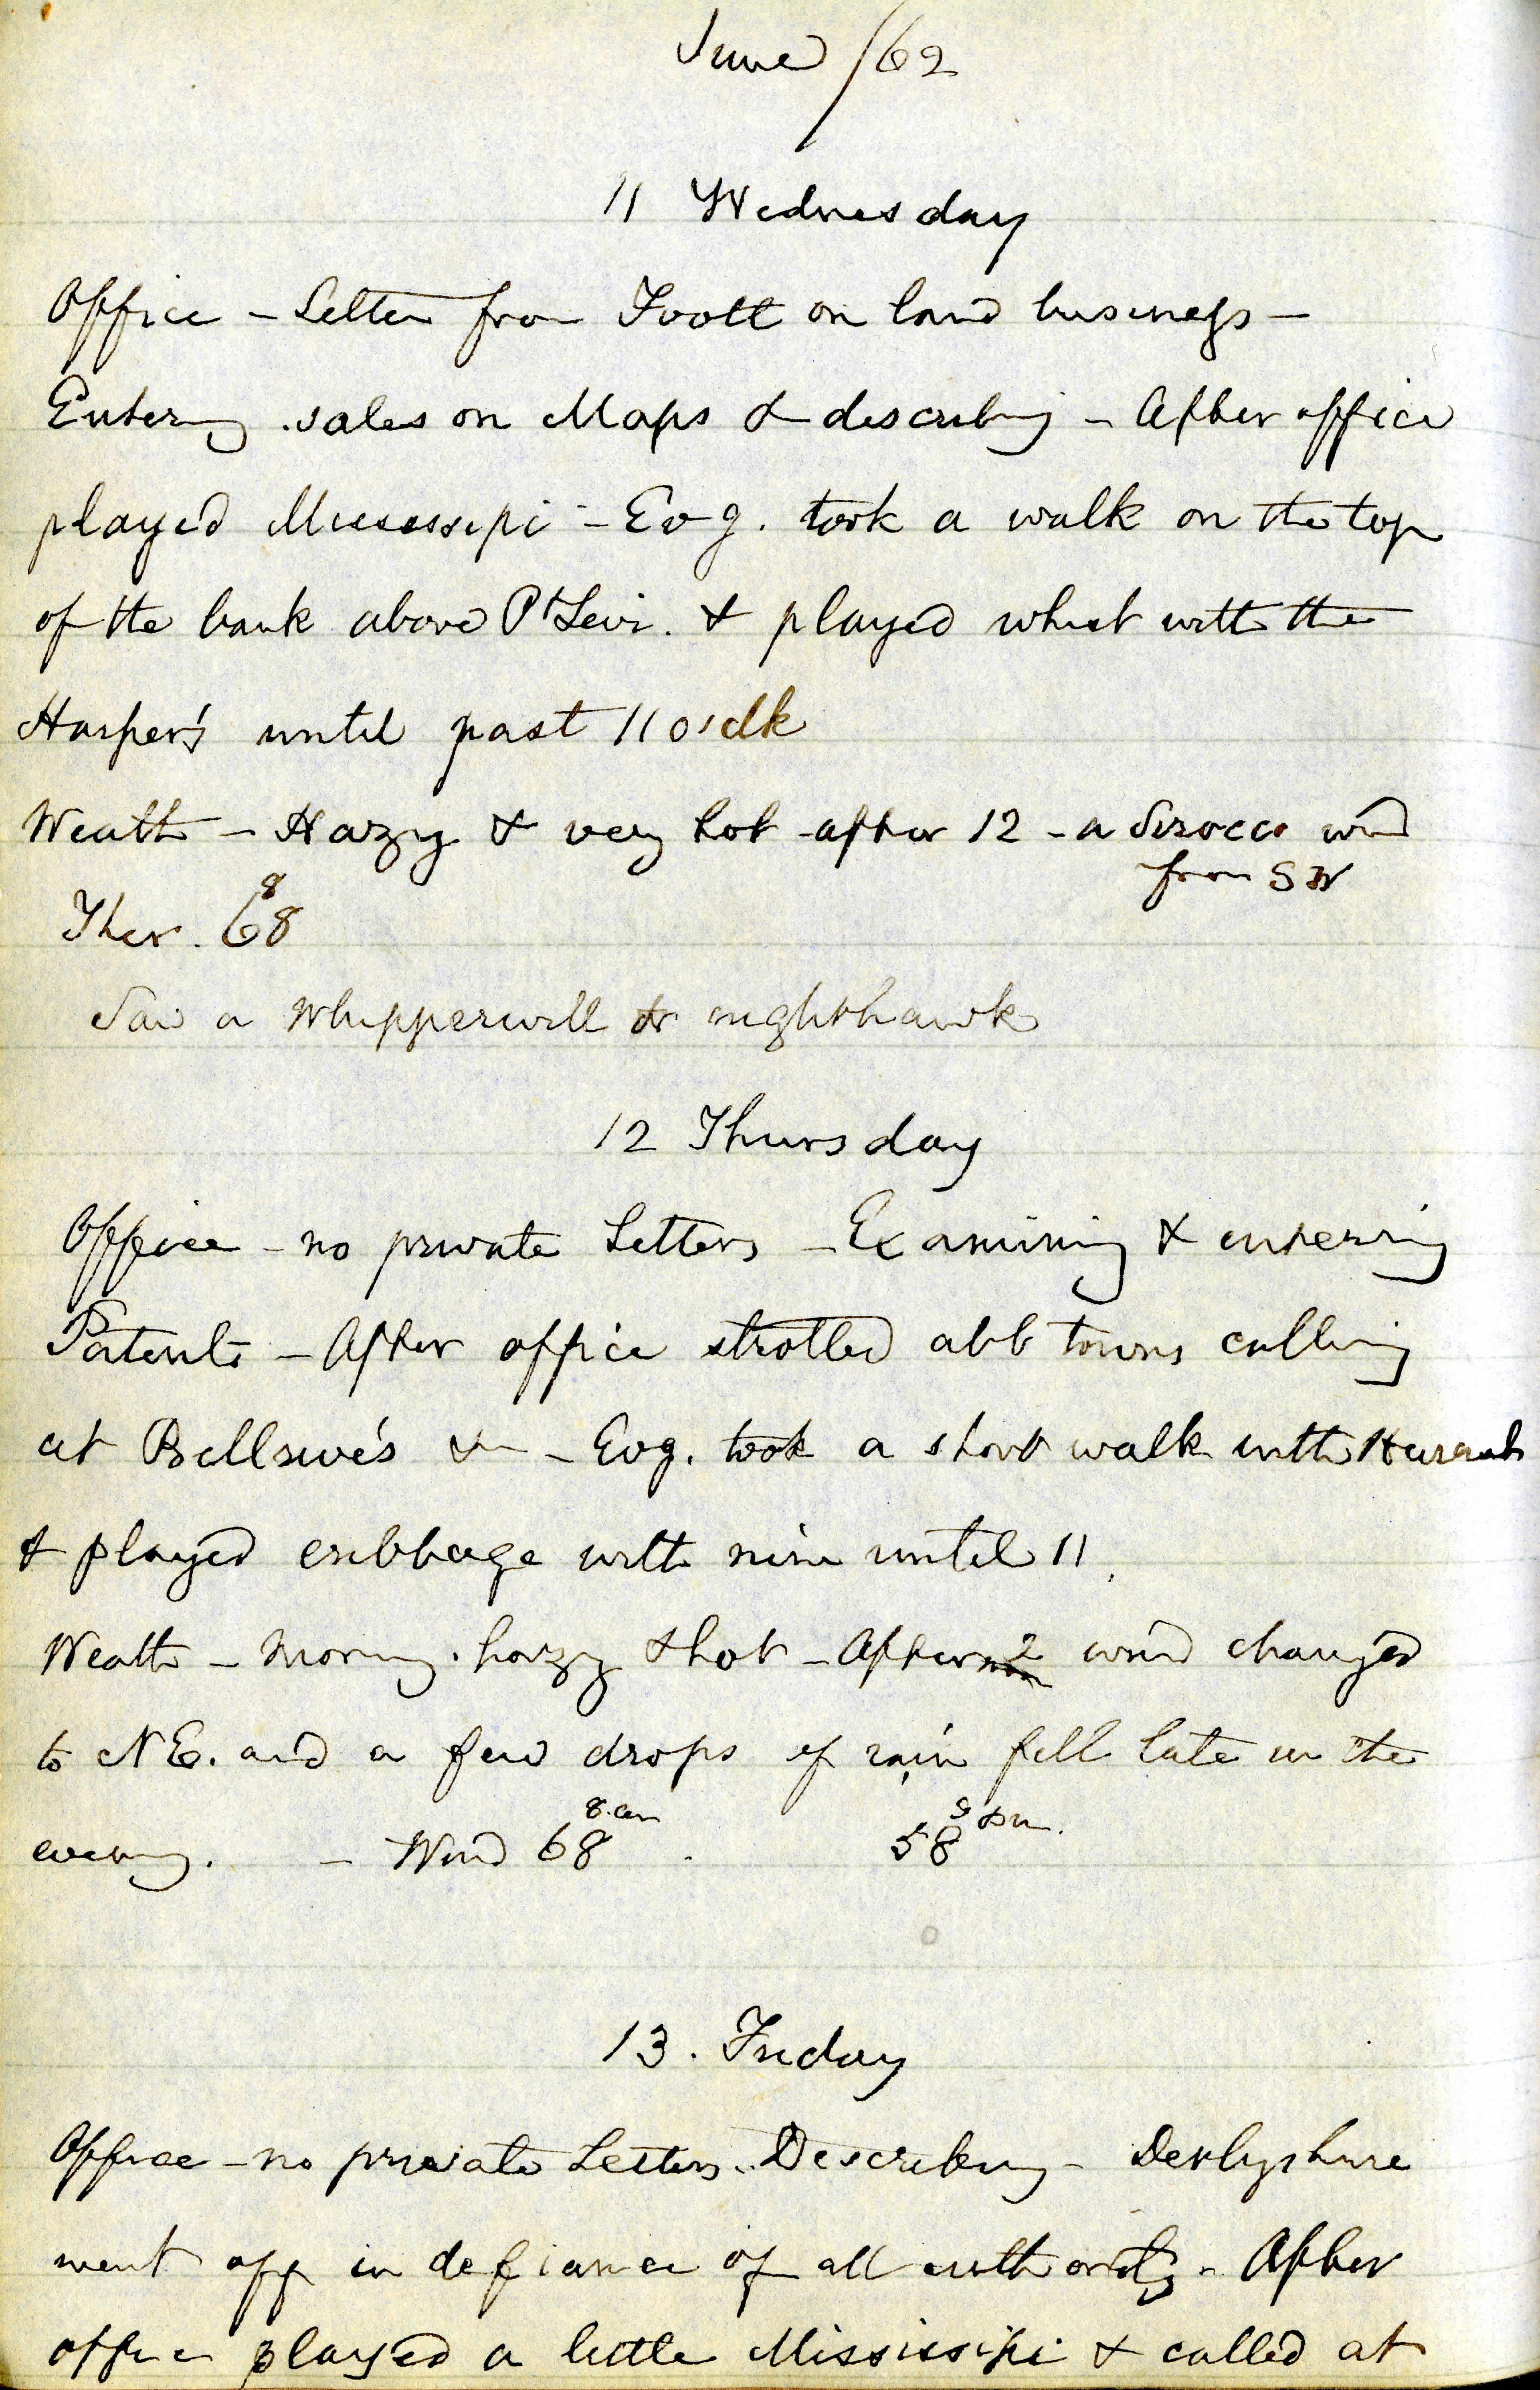 June /62
11 Wednesday
Office - Letter from Foott on land business -
Entering sales on Maps & describing - After office
played Mississipi - Evg. took a walk on the top
of the bank above Pt Levi. & played whist with the
Harper's until past 11 o'clk
Weath - Hazy & very hot after 12 - a Sirocco wind
from SW
8
Ther. 68
Saw a Whipperwill or nighthawk
12 Thursday
Office - no private Letters - Examining & entering
Patents - After office strolled abt town calling
at & - Evg. took a short walk with
& played cribbage with until 11.
Weath - Morng. hazy & hot - After 2 wind changed
to NE. and a few drops of rain fell late in the
8 am 9 pm.
evening. - Wind 68 . 58
13. Friday
Office - no private Letters. Describing - Derbyshire
went off in defiance of all authority - After
office played a little Mississipi & called at